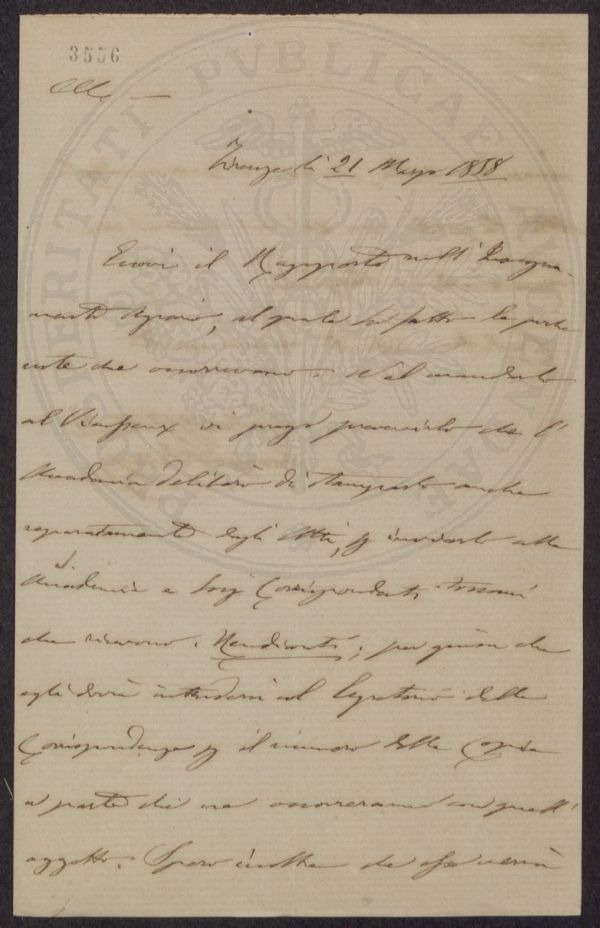 3556
PROSPERITATI PVBLICAE AVGENDAE
Firenze li 21 Marzo 1858
Eccovi il Rapporto sull'Insegna-
mento Agrario, al quale ho fatto le poche
note che occorrevano. Nel mandarlo
al Vieusseux vi prego prevenirlo che l'
Accademia deliberò di stamparlo anche
separatamente dagli Atti, p inviarlo alle
Accademie e Socj Corrispondenti toscani
che ricevono i Rendiconti; per guisa che
egli dovrà intendersi col Segretario delle
Corrispondenze p il numero delle Copie
a parte che ne occorreranno con quell'
oggetto. Spero inoltre che